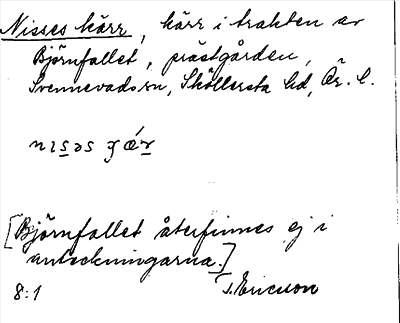 Nisses kärr, kärr i trakten av
Björnfallet, prästgården,
Svennevads sn, Sköllersta hd, Ör. l.
nɩsəs ɟǽr
[Björnfallet återfinnes ej i
anteckningarna.]
8:1 T. Ericsson